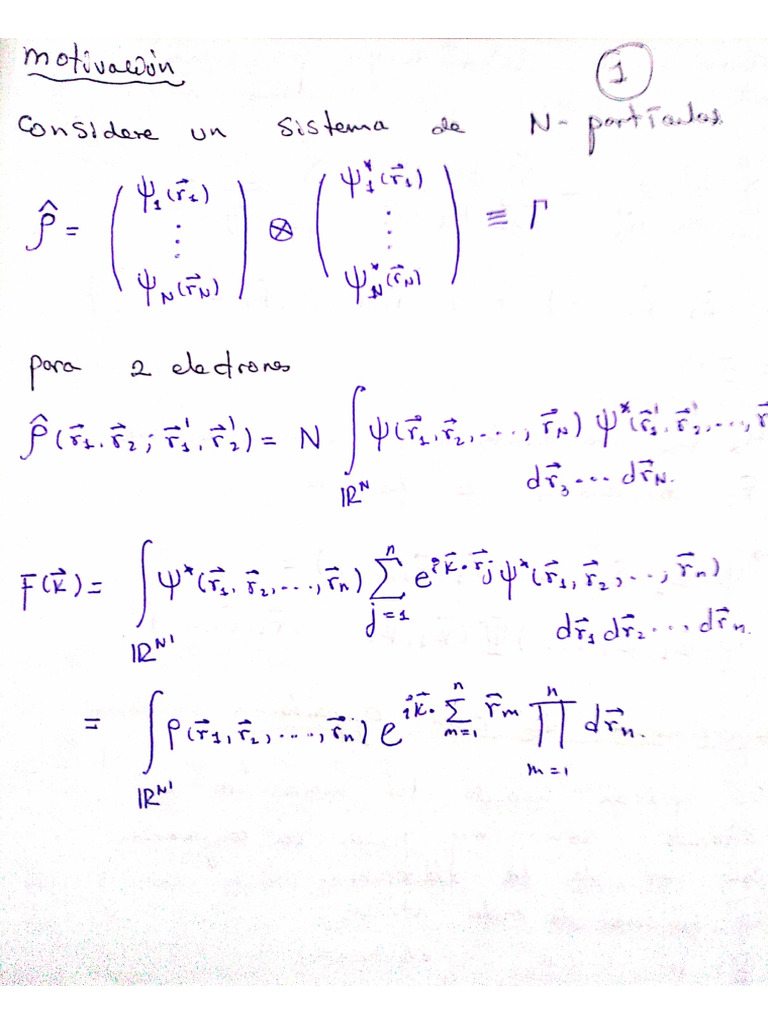 motivación
1
Considere un sistema de N-partículas
ρ̂ = (ψ₁(r⃗₁) ⋮ ψ_N(r⃗_N)) ⊗ (ψ₁*(r⃗₁) ⋮ ψ_N*(r⃗_N)) ≡ Γ
para 2 electrones
ρ̂(r⃗₁, r⃗₂; r⃗₁', r⃗₂') = N ∫_{ℝ^N} ψ(r⃗₁, r⃗₂, ..., r⃗_N) ψ*(r⃗₁', r⃗₂', ..., r⃗
dr⃗₃ ... dr⃗_N.
F(k⃗) = ∫_{ℝ^{N'}} ψ*(r⃗₁, r⃗₂, ..., r⃗_n) Σ_{j=1}^{n} e^{ik⃗·r⃗_j} ψ*(r⃗₁, r⃗₂, ..., r⃗_n)
dr⃗₁ dr⃗₂ ... dr⃗_n.
= ∫_{ℝ^{N'}} ρ(r⃗₁, r⃗₂, ..., r⃗_n) e^{ik⃗· Σ_{m=1}^{n} r⃗_m} ∏_{m=1}^{n} dr⃗_n.